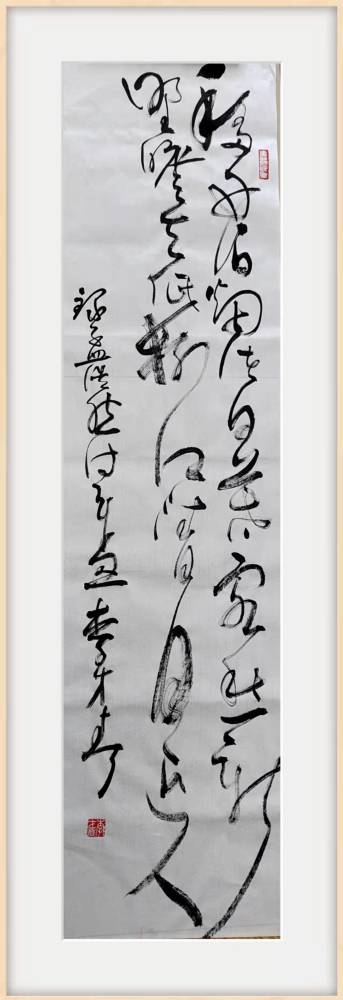 移舟泊烟渚日暮客愁新
野旷天低树江清月近人
录孟浩然诗